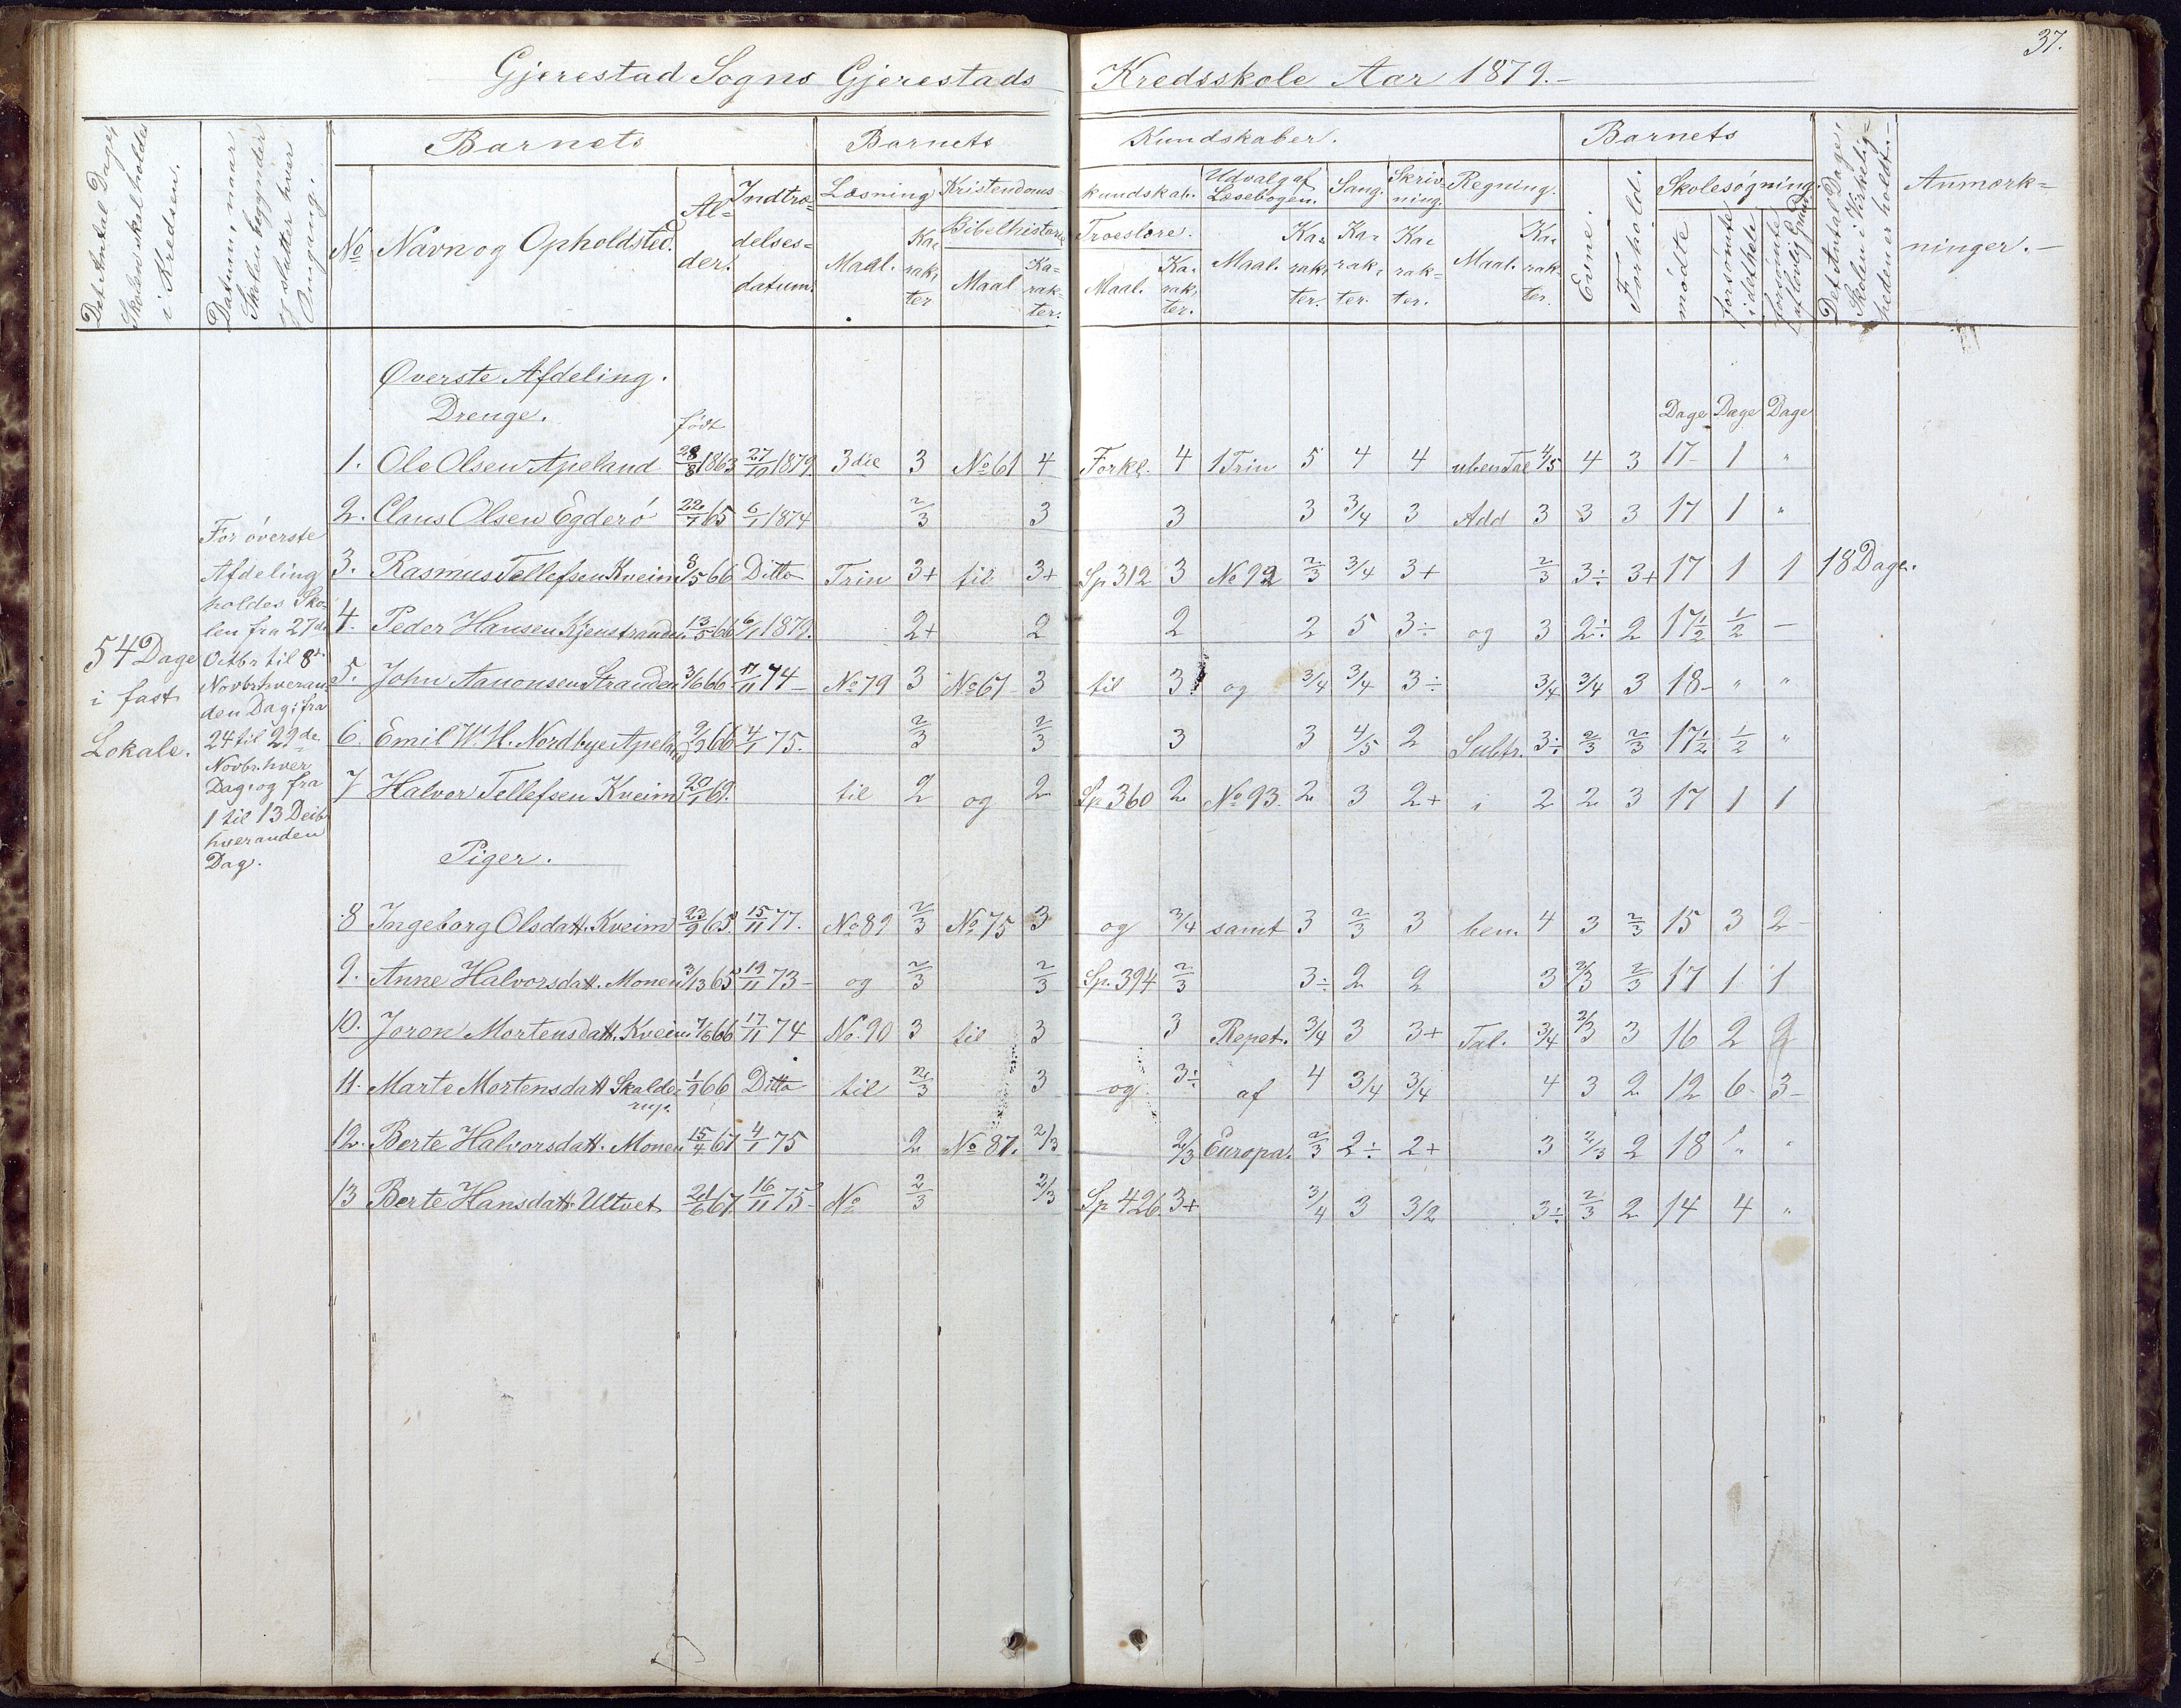 37.
Gjerestad Sogns Gjerestads Kredsskole Aar 1879.-
Det Antal Dage, Skolen skal holdes i Kredsen.
Datum, naar Skolen begynder og slutter hver Omgang.
Barnets
Barnets
Kundskaber.
Barnets
No
Navn og Opholdsted.
Al- der.
Indtræ- delses- datum.
Læsning
Kristendoms kundskab.
Udvalg af Læsebogen.
Sang.
Skriv- ning.
Regning.
Evne.
Forhold.
Skolesøgning.
Det Antal Dage, Skolen i Virkelig- heden er holdt.-
Anmærk- ninger.-
Maal. Ka- rak- ter
Bibelhistorie
Maal Ka- rak- ter.
Troeslære.
Maal. Ka- rak- ter.
Maal. Ka- rak- ter.
Ka- rak- ter.
Ka- rak- ter.
Maal. Ka- rak- ter.
mødte
forsømte i det hele
forsømte af lovlig Grund
Øverste Afdeling.
Drenge.
født
Dage Dage Dage
1. Ole Olsen Apeland 28/8 1863 27/10 1879. 3die 3 No 61 4 Forkl. 4 1 Trin 5 4 4 uben Tal 4/5 4 3 17 1 "
2. Claus Olsen Egderö 22/7 65 6/1 1874 2/3 3 3 3 3/4 3 Add 3 3 3 17 1 "
3. Rasmus Tellefsen Kveim 8/5 66 Ditto Trin 3+ til 3+ Sp 312 3 No 92 2/3 3/4 3+ 2/3 3÷ 3+ 17 1 1 18 Dage.
4. Peder Hansen Kjenstranden 13/5 66 6/1 1879. 2+ 2 2 2 5 3÷ og 3 2÷ 2 17 1/2 1/2 -
5. John Aanonsen Stranden 3/6 66 17/11 74- No 79 3 No 67 3 til 3 og 3/4 3/4 3÷ 3/4 3/4 3 18- " "
6. Emil W. H. Nordbye Apeland 9/9 66 4/1 75. 2/3 2/3 3 3 4/5 2 Subtr. 3÷ 2/3 2/3 17 1/2 1/2 "
7 Halvor Tellefsen Kveim 20/1 69. til 2 og 2 Sp 360 2 No 93. 2 3 2+ i 2 2 3 17 1 1
54 Dage
i fast
Lokale.
For överste
Afdeling
holdes Sko-
len fra 27de
Octbr til 8de
Novbr. hveran-
den Dag; fra
24 til 29de
Novbr. hver
Dag; og fra
1 til 13 Decbr
hveranden
Dag.
Piger.
8 Ingeborg Olsdatt. Kveim 23/9 65. 15/11 77. No 89 2/3 No 75 3 og 3/4 samt 3 2/3 3 ben. 4 3 2/3 15 3 2-
9. Anne Halvorsdatt. Monen 3/13 65 19/11 73- og 2/3 2/3 Sp. 394 2/3 3÷ 2 2 3 2/3 2/3 17 1 1
10. Joron Mortensdatt. Kveim 7/6 66 17/11 74 No. 90 3 til 3 3 Repet. 3/4 3 3+ Tal. 3/4 2/3 3 16 2 2
11. Marte Mortensdatt Skalde- rup. 1/9 66 Ditto til 2/3 3 og 3÷ af 4 3/4 3/4 4 3 2 12 6- 3-
12. Berte Halvorsdatt. Monen 15/4 67 4/1 75 2 No 87. 2/3 2/3 Europa. 2/3 2÷ 2+ 3 2/3 2 18 " "
13 Berte Hansdatt. Ultvet 21/6 67. 16/11 75- No 2/3 2/3 Sp 426 3+ 3/4 3 3/2 3÷ 2/3 2 14 4 "